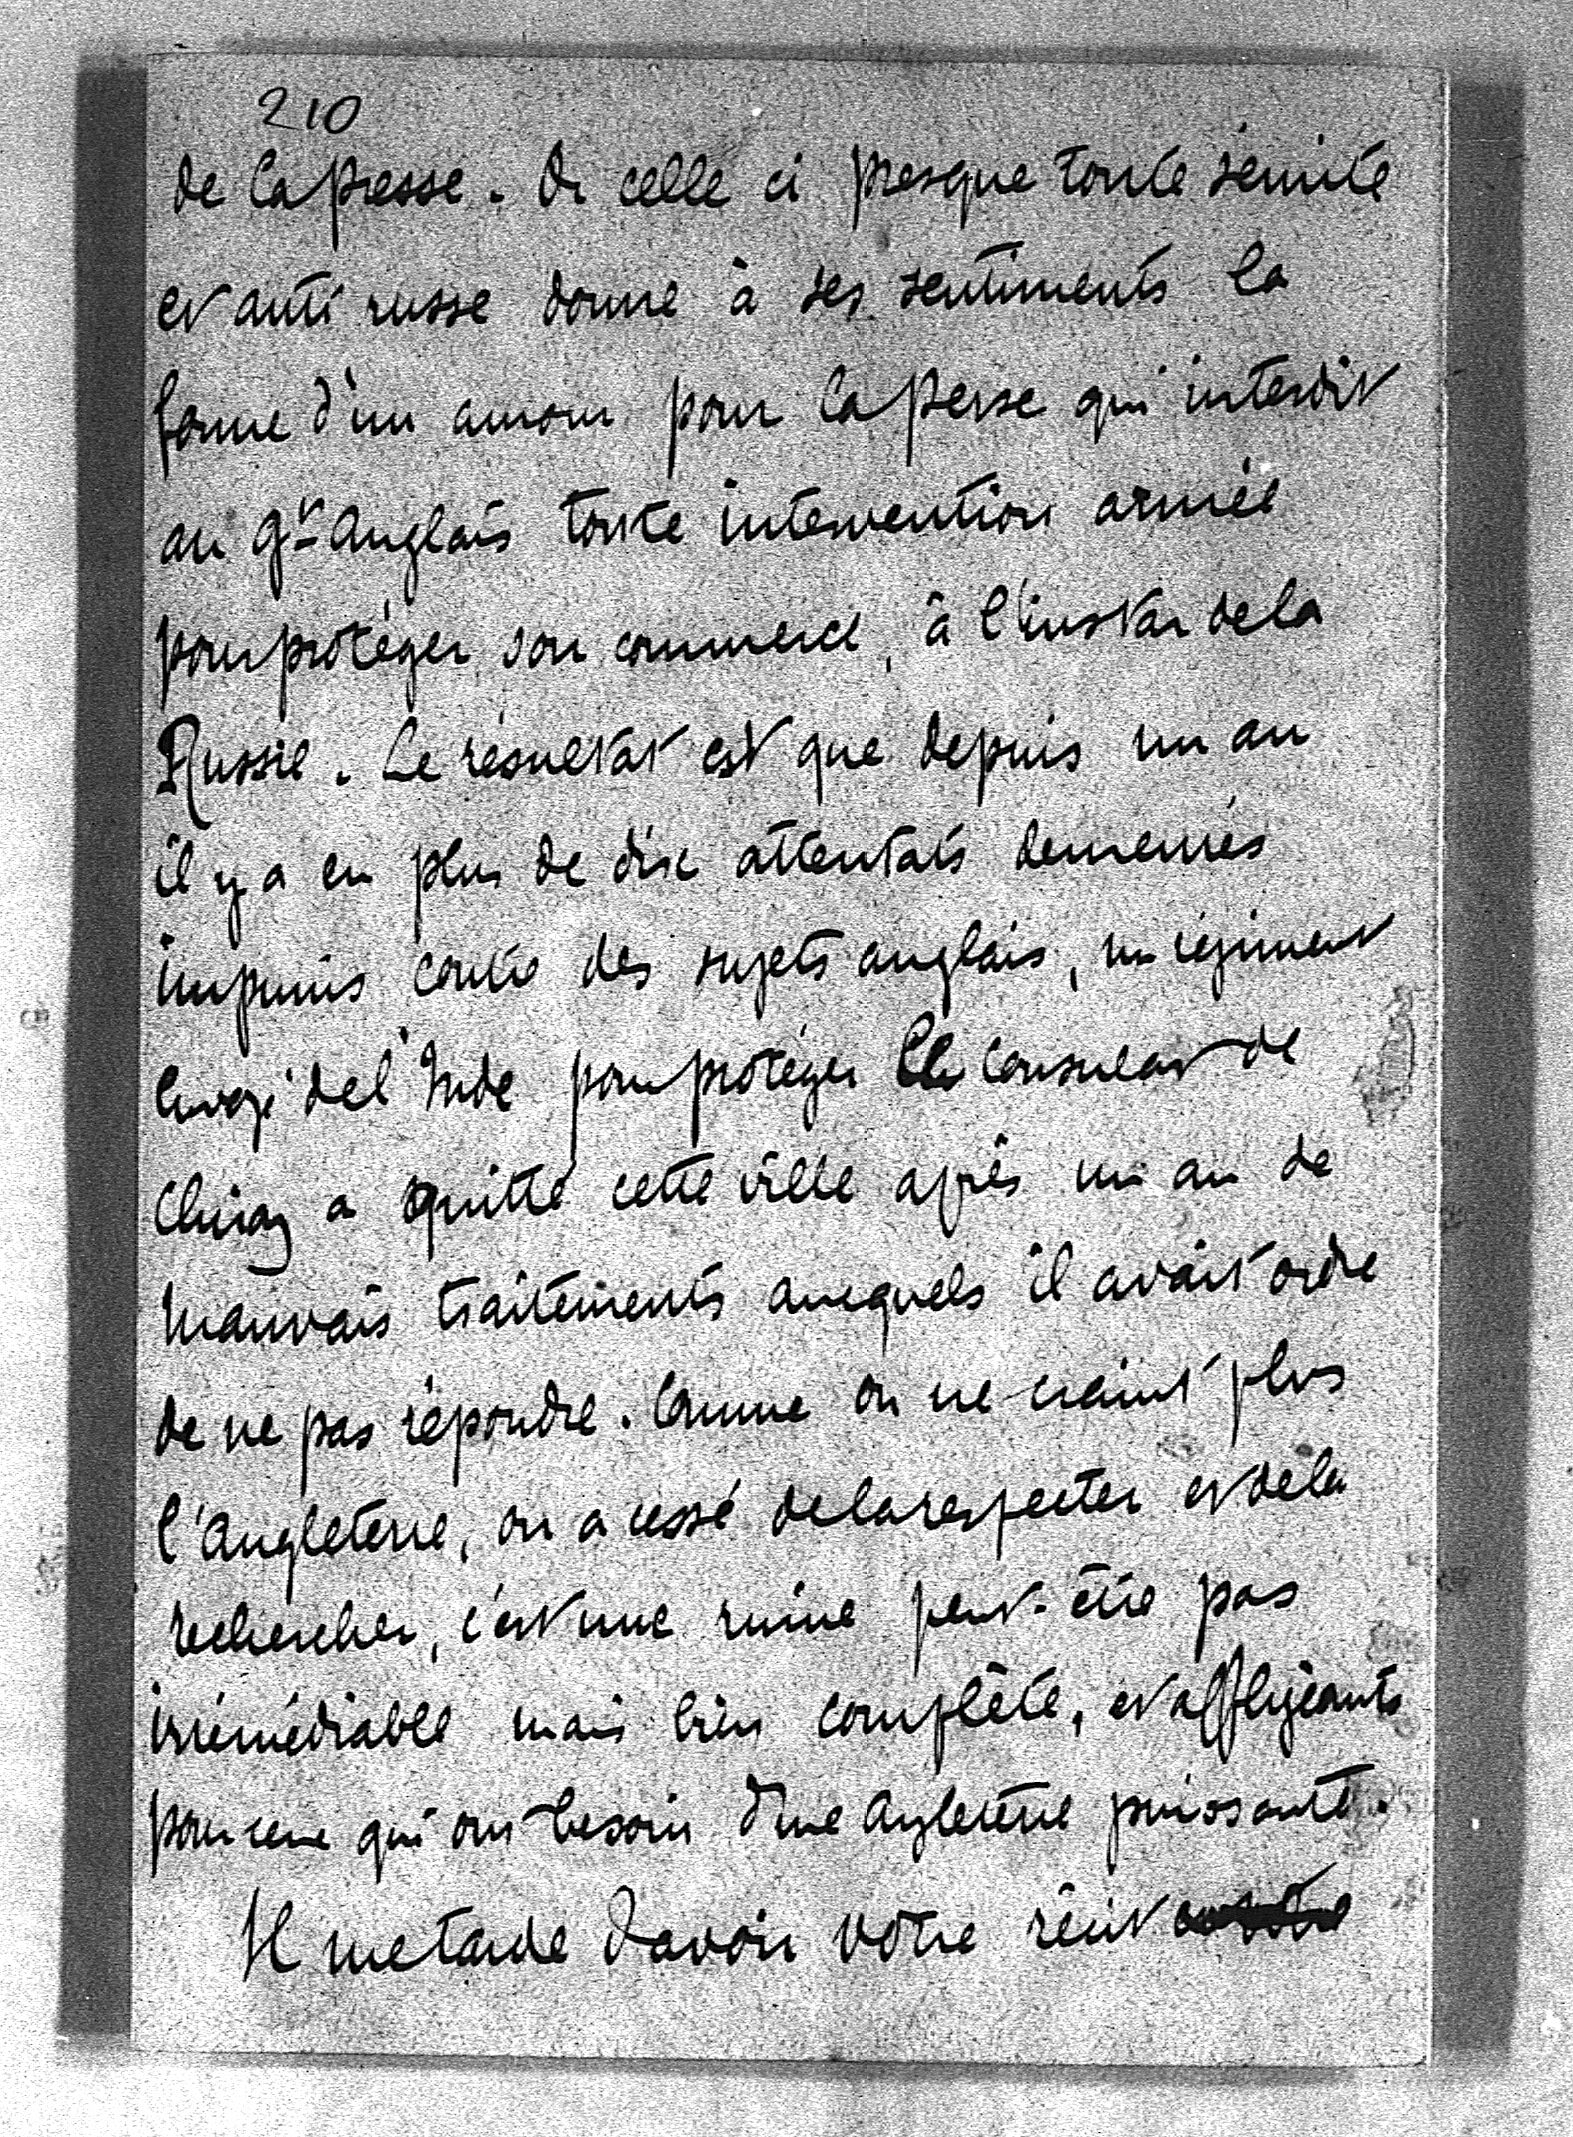 210
de la presse. Or celle ci presque toute sémite
et anti russe donne à ses sentiments la
forme d'un amour pour la Perse qui interdit
au Gvt Anglais toute intervention armée
pour protéger son commerce, à l'instar de la
Russie. Le résultat est que depuis un an
il y a eu plus de dix attentats demeurés
impunis contre des sujets anglais, un régiment
envoyé de l'Inde pour protéger le consulat de
Chiraz a quitté cette ville après un an de
mauvais traitements auxquels il avait ordre
de ne pas répondre. Comme on ne craint plus
l'Angleterre, on a cessé de la respecter et de la
rechercher, c'est une ruine peut-être pas
irrémédiable mais bien complète, et affligeante
pour ceux qui ont besoin d'une Angleterre puissante.
Il me tarde d'avoir votre récit